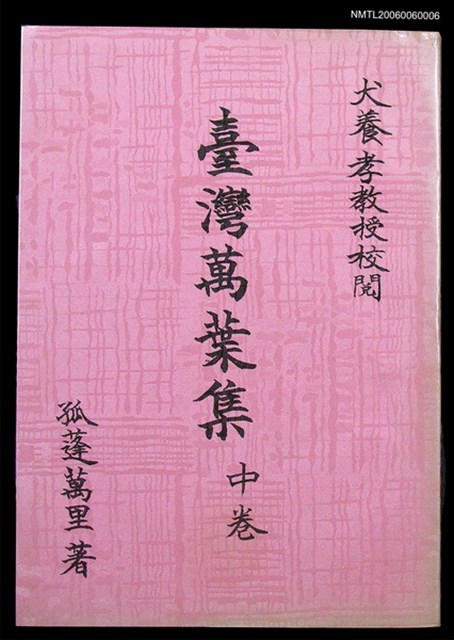 NMTL20060060006
犬養孝教授校閱
臺灣萬葉集
中卷
孤蓬萬里著